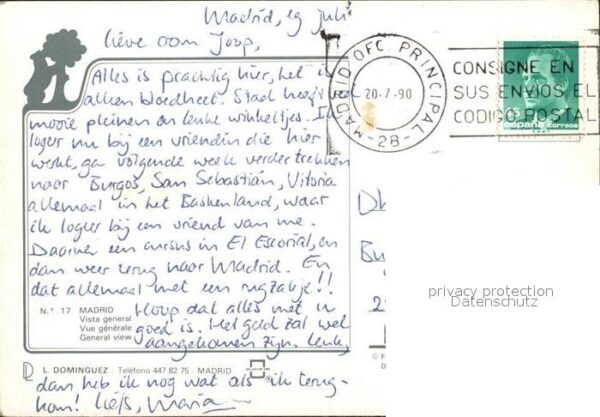 Madrid, 19 juli
Lieve oom Joop,
Alles is prachtig hier, het is
alleen bloedheet. Stad heeft veel
mooie pleinen en leuke winkeltjes. Ik
logeer nu bij een vriendin die hier
werkt, ga volgende week verder trekken
naar Burgos, San Sebastián, Vitoria
allemaal in het Baskenland, waar
ik logeer bij een vriend van me.
Daarna een cursus in El Escorial, en
dan weer terug naar Madrid. En
dat allemaal met een rugzakje!!
Hoop dat alles met je
goed is. Het geld zal wel
aangekomen zijn. Leuk,
dan heb ik nog wat als ik terug-
kom! Liefs, Maria
N.° 17 MADRID
Vista general
Vue générale
General view
L. DOMINGUEZ - Teléfono 447 82 75 - MADRID
MADRID OFC. PRINCIPAL
20-7-90
-28-
CONSIGNE EN
SUS ENVIOS EL
CODIGO POSTAL
España Correos
Bu
privacy protection
Datenschutz
© F